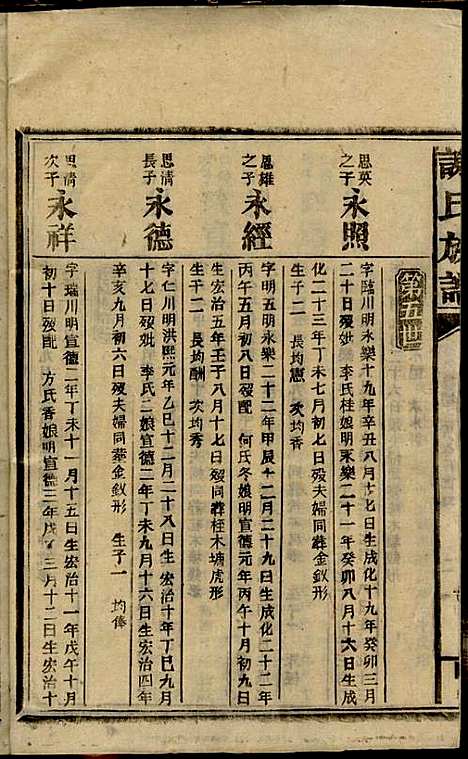 謝氏族譜
第五世
思英之子 永照
字臨川明永樂十九年辛丑八月十七日生成化十九年癸卯三月
二十日歿妣 李氏桂娘明永樂二十一年癸卯八月十六日生成
化二十三年丁未七月初七日歿夫婦同葬金釵形
生子二 長均憲 次均香
思雄之子 永經
字明五明永樂二十二年甲辰十二月二十九日生成化二十二年
丙午五月初八日歿配 何氏冬娘明宣德元年丙午十月初九日
生宏治五年壬子八月十七日歿 同葬桂木塘虎形
生子二 長均酬 次均秀
思清長子 永德
字仁川明洪熙元年乙巳十二月二十八日生宏治十年丁巳九月
十七日歿妣 李氏二娘宣德二年丁未九月十六日生宏治四年
辛亥九月初六日歿夫婦同葬金釵形 生子一 均俸
思清次子 永祥
字瑞川明宣德二年丁未十一月十五日生宏治十一年戊午十月
初十日歿配 方氏香娘明宣德三年戊申三月十二日生宏治十